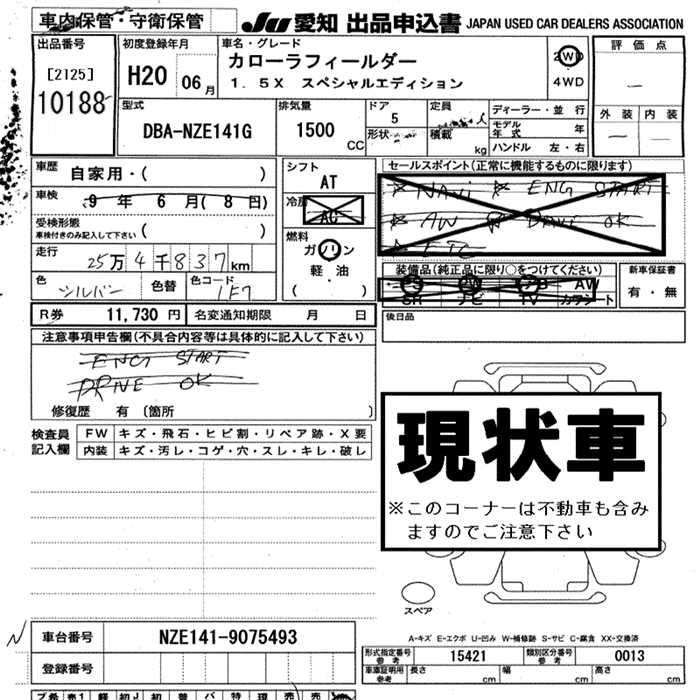 車内保管・守衛保管
JU 愛知 出品申込書 JAPAN USED CAR DEALERS ASSOCIATION
出品番号
[2125]
10188
初度登録年月
H20 06月
車名・グレード
カローラフィールダー
1．5X スペシャルエディション
2WD
4WD
評価点
外装 内装
型式
DBA-NZE141G
排気量
1500 CC
ドア
5
形状
定員 人
積載 kg
ディーラー・並行
モデル年式 年
ハンドル 左・右
車歴 自家用・( )
車検 9 年 6 月 ( 8 日)
受検形態
車検付きのみ記入して下さい ( )
走行 25万4千837km
色 シルバー 色替 色コード 1F7
シフト
AT
冷房
AC
燃料
ガソリン
軽・油
( )
セールスポイント(正常に機能するものに限ります)
☆ NAVi ☆ ENG START
☆ AW ☆ DRIVE OK
☆ ETC
装備品(純正品に限り○をつけてください)
PS PW AB AW
SR ナビ TV カワシート
新車保証書
有・無
R券 11,730円 名変通知期限 月 日
後日品
注意事項申告欄(不具合内容等は具体的に記入して下さい)
ENG START
DRIVE OK
修復歴 有 [箇所 ]
検査員記入欄
FW キズ・飛石・ヒビ割・リペア跡・X要
内装 キズ・汚レ・コゲ・穴・スレ・キレ・破レ
現状車
※このコーナーは不動車も含みますのでご注意下さい
スペア
A-キズ E-エクボ U-凹み W-補修跡 S-サビ C-腐食 XX-交換済
N
車台番号 NZE141-9075493
登録番号
型式指定番号 参考 15421 類別区分番号 参考 0013
車庫証明用 参考 長さ cm 幅 cm 高さ cm